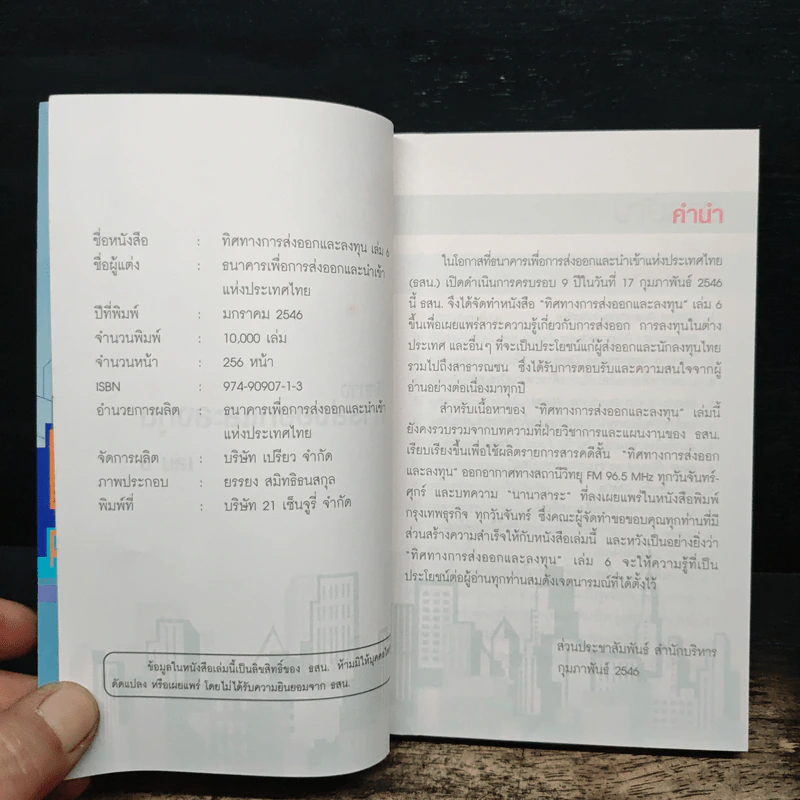 ชื่อหนังสือ : ทิศทางการส่งออกและลงทุน เล่ม 6
ชื่อผู้แต่ง : ธนาคารเพื่อการส่งออกและนำเข้า
แห่งประเทศไทย
ปีที่พิมพ์ : มกราคม 2546
จำนวนพิมพ์ : 10,000 เล่ม
จำนวนหน้า : 256 หน้า
ISBN : 974-90907-1-3
อำนวยการผลิต : ธนาคารเพื่อการส่งออกและนำเข้า
แห่งประเทศไทย
จัดการผลิต : บริษัท เปรียว จำกัด
ภาพประกอบ : ยรรยง สมิทธิธนสกุล
พิมพ์ที่ : บริษัท 21 เซ็นจูรี่ จำกัด
ข้อมูลในหนังสือเล่มนี้เป็นลิขสิทธิ์ของ ธสน. ห้ามมิให้บุคคลใด
ดัดแปลง หรือเผยแพร่ โดยไม่ได้รับความยินยอมจาก ธสน.
คำนำ
ในโอกาสที่ธนาคารเพื่อการส่งออกและนำเข้าแห่งประเทศไทย
(ธสน.) เปิดดำเนินการครบรอบ 9 ปีในวันที่ 17 กุมภาพันธ์ 2546
นี้ ธสน. จึงได้จัดทำหนังสือ "ทิศทางการส่งออกและลงทุน" เล่ม 6
ขึ้นเพื่อเผยแพร่สาระความรู้เกี่ยวกับการส่งออก การลงทุนในต่าง
ประเทศ และอื่นๆ ที่จะเป็นประโยชน์แก่ผู้ส่งออกและนักลงทุนไทย
รวมไปถึงสาธารณชน ซึ่งได้รับการตอบรับและความสนใจจากผู้
อ่านอย่างต่อเนื่องมาทุกปี
สำหรับเนื้อหาของ "ทิศทางการส่งออกและลงทุน" เล่มนี้
ยังคงรวบรวมจากบทความที่ฝ่ายวิชาการและแผนงานของ ธสน.
เรียบเรียงขึ้นเพื่อใช้ผลิตรายการสารคดีสั้น "ทิศทางการส่งออก
และลงทุน" ออกอากาศทางสถานีวิทยุ FM 96.5 MHz ทุกวันจันทร์-
ศุกร์ และบทความ "นานาสาระ" ที่ลงเผยแพร่ในหนังสือพิมพ์
กรุงเทพธุรกิจ ทุกวันจันทร์ ซึ่งคณะผู้จัดทำขอขอบคุณทุกท่านที่มี
ส่วนสร้างความสำเร็จให้กับหนังสือเล่มนี้ และหวังเป็นอย่างยิ่งว่า
"ทิศทางการส่งออกและลงทุน" เล่ม 6 จะให้ความรู้ที่เป็น
ประโยชน์ต่อผู้อ่านทุกท่านสมดังเจตนารมณ์ที่ได้ตั้งไว้
ส่วนประชาสัมพันธ์ สำนักบริหาร
กุมภาพันธ์ 2546